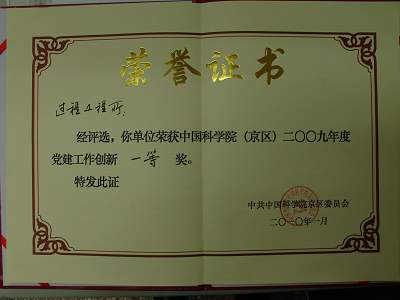 荣誉证书
过程工程所：
经评选，你单位荣获中国科学院（京区）二〇〇九年度
党建工作创新 一等 奖。
特发此证
中共中国科学院京区委员会
二〇一〇年一月